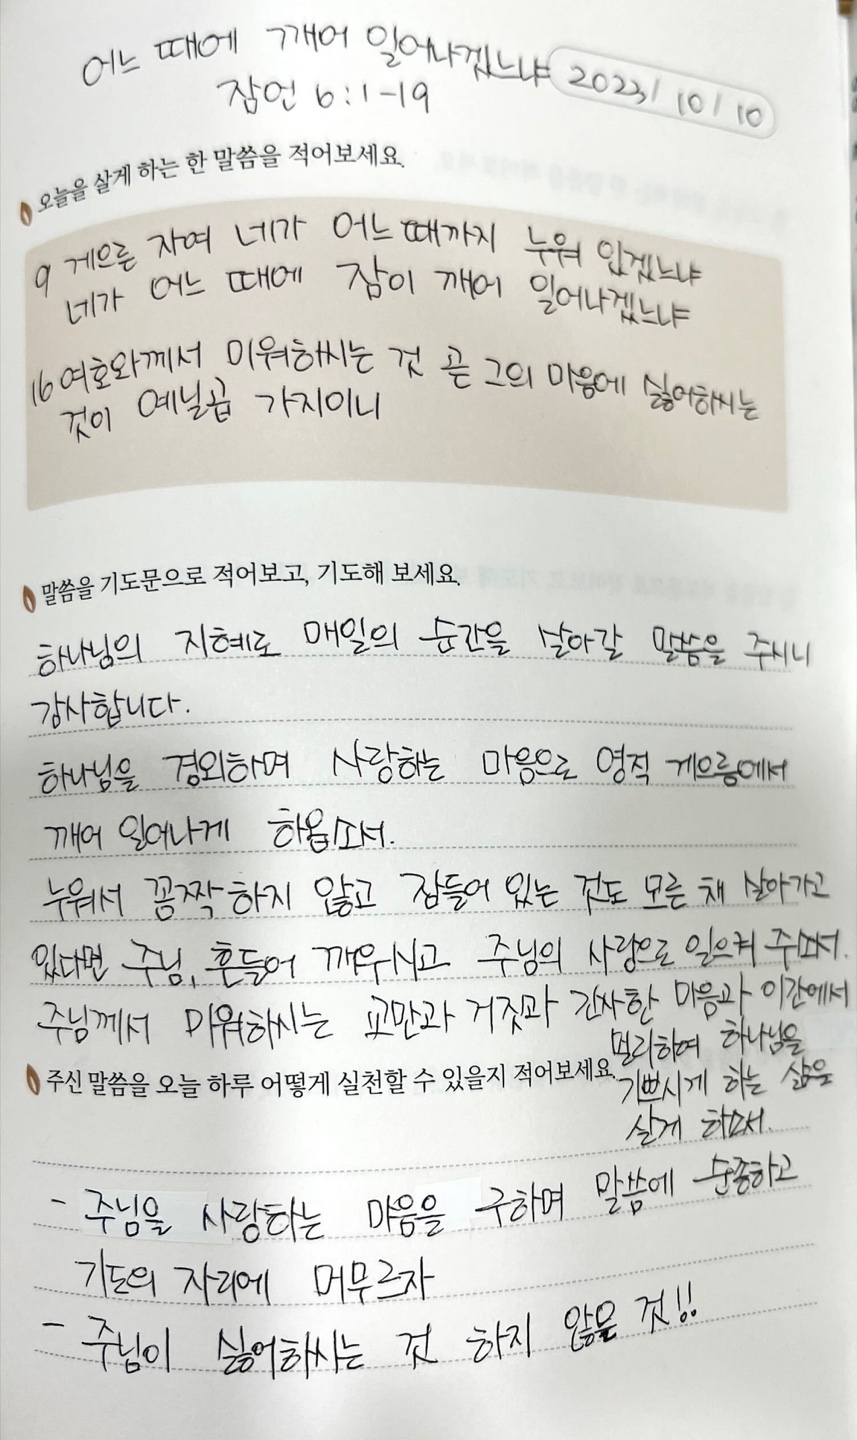 어느 때에 깨어 일어나겠느냐 2023/10/10
잠언 6:1-19
오늘을 살게 하는 한 말씀을 적어보세요.
9 게으른 자여 네가 어느때까지 누워 있겠느냐
네가 어느 때에 잠이 깨어 일어나겠느냐
16 여호와께서 미워하시는 것 곧 그의 마음에 싫어하시는
것이 예닐곱 가지이니
말씀을 기도문으로 적어보고, 기도해 보세요.
하나님의 지혜로 매일의 순간을 살아갈 말씀을 주시니
감사합니다.
하나님을 경외하며 사랑하는 마음으로 영적 게으름에서
깨어 일어나게 하옵소서.
누워서 꼼짝하지 않고 잠들어 있는 것도 모른 채 살아가고
있다면 주님, 흔들어 깨우시고 주님의 사랑으로 일으켜 주소서.
주님께서 미워하시는 교만과 거짓과 간사한 마음과 이간에서
멀리하여 하나님을
기쁘시게 하는 삶을
살게 하소서.
주신 말씀을 오늘 하루 어떻게 실천할 수 있을지 적어보세요.
- 주님을 사랑하는 마음을 구하며 말씀에 순종하고
기도의 자리에 머무르자
- 주님이 싫어하시는 것 하지 않을 것!!